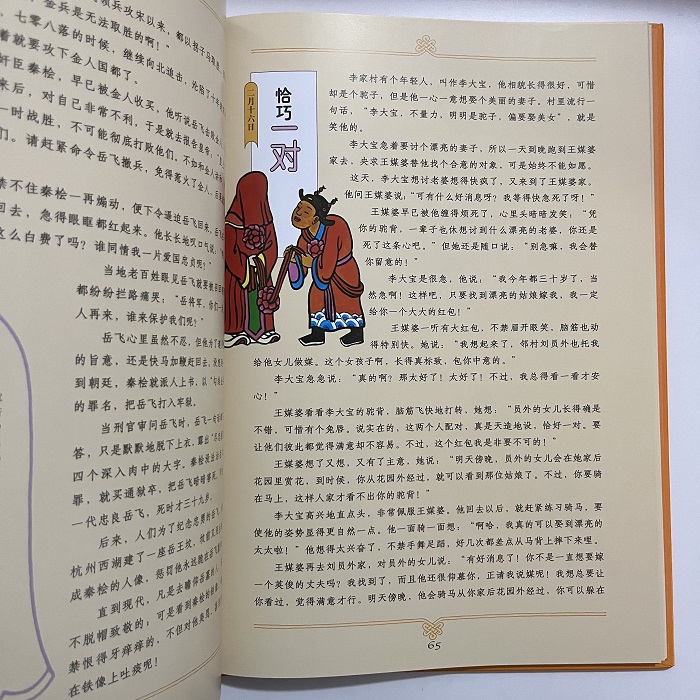 金兵是无法取胜的啊！”
七零八落的时候，继续向北追击，
着就要攻下金人国都了。
奸臣秦桧，早已被金人收买，他听说岳飞
来后，对自己非常不利，于是就去报告皇帝，
一时战胜，不可能彻底打败他们。不如和金人
们。请赶紧命令岳飞撤兵，免得惹火了金人，
禁不住秦桧一再煽动，便下令逼迫岳飞回来，
回去，急得眼眶都红起来。他长长地叹口气说：
么白费了吗？谁同情我一片爱国忠贞呢？”
当地老百姓眼见岳飞就要撤
都纷纷拦路痛哭：“岳将军，你们一
人再来，谁来保护我们呢？”
岳飞心里虽然不忍，但他为了
的旨意，还是快马加鞭赶回去。
到朝廷，秦桧就派人上书，以“
的罪名，把岳飞打入牢狱。
当刑官审问岳飞时，岳飞一句
答，只是默默地脱下上衣，露出“
四个深入肉中的大字。秦桧没
罪，就买通狱卒，把岳飞暗暗害死
一代忠良岳飞，死时才三十九岁。
后来，人们为了纪念忠勇的岳飞，
杭州西湖建了一座岳王坟，坟前
成秦桧的人像，惩罚他永远跪在岳飞
直到现代，凡是去瞻仰岳墓的人，
不脱帽致敬的；可是看到秦桧的
禁恨得牙痒痒的，不但对他臭骂，
在铁像上吐痰呢！
二月十六日
恰巧一对
李家村有个年轻人，叫作李大宝，他相貌长得很好，可惜
却是个驼子，但是他一心一意想娶个美丽的妻子，村里流行一
句话，“李大宝，不量力，明明是驼子，偏要娶美女”，就是
笑他的。
李大宝急着要讨个漂亮的妻子，所以一天到晚跑到王媒婆
家去，央求王媒婆替他找个合意的对象，可是始终不能如愿。
这天，李大宝想讨老婆想得快疯了，又来到了王媒婆家。
他问王媒婆说：“可有什么好消息呀？我等得快急死了呀！”
王媒婆早已被他缠得烦死了，心里头暗暗发笑：“凭
你的驼背，一辈子也休想讨到什么漂亮的老婆，你还是
死了这条心吧。”但她还是随口说：“别急嘛，我会替
你留意的！”
李大宝是很急，他说：“我今年都三十岁了，当
然急啊！这样吧，只要找到漂亮的姑娘嫁我，我一定
给你一个大大的红包！”
王媒婆一听有大红包，不禁眉开眼笑，脑筋也动
得特别快。她说：“我想起来了，邻村刘员外也托我
给他女儿做媒。这个女孩子啊，长得真标致，包你中意的。”
李大宝急急说：“真的啊？那太好了！太好了！不过，我总得看一看才安
心！”
王媒婆看看李大宝的驼背，脑筋飞快地打转，她想：“员外的女儿长得确是
不错，可惜有个兔唇。说实在的，这两个人配对，真是天造地设，恰好一对。要
让他们彼此都觉得满意却不容易。不过，这个红包我是非要不可的！”
王媒婆想了又想，又有了主意，她说：“明天傍晚，员外的女儿会在她家后
花园里赏花，到时候，你从花园外经过，就可以看到那位姑娘了。不过，你要骑
在马上，这样人家才看不出你的驼背！”
李大宝高兴地直点头，非常佩服王媒婆。他回去以后，就赶紧练习骑马，要
使他的姿势显得更自然一点。他一面骑一面想：“啊哈，我真的可以娶到漂亮的
太太啦！”他想得太兴奋了，不禁手舞足蹈，好几次都差点从马背上摔下来哩。
王媒婆再去刘员外家，对员外的女儿说：“有好消息了！你不是一直想要嫁
一个英俊的丈夫吗？我找到了，而且他还很仰慕你，正请我说媒呢！我想总要让
你看过，觉得满意才行。明天傍晚，他会骑马从你家后花园外经过，你可以躲在
65